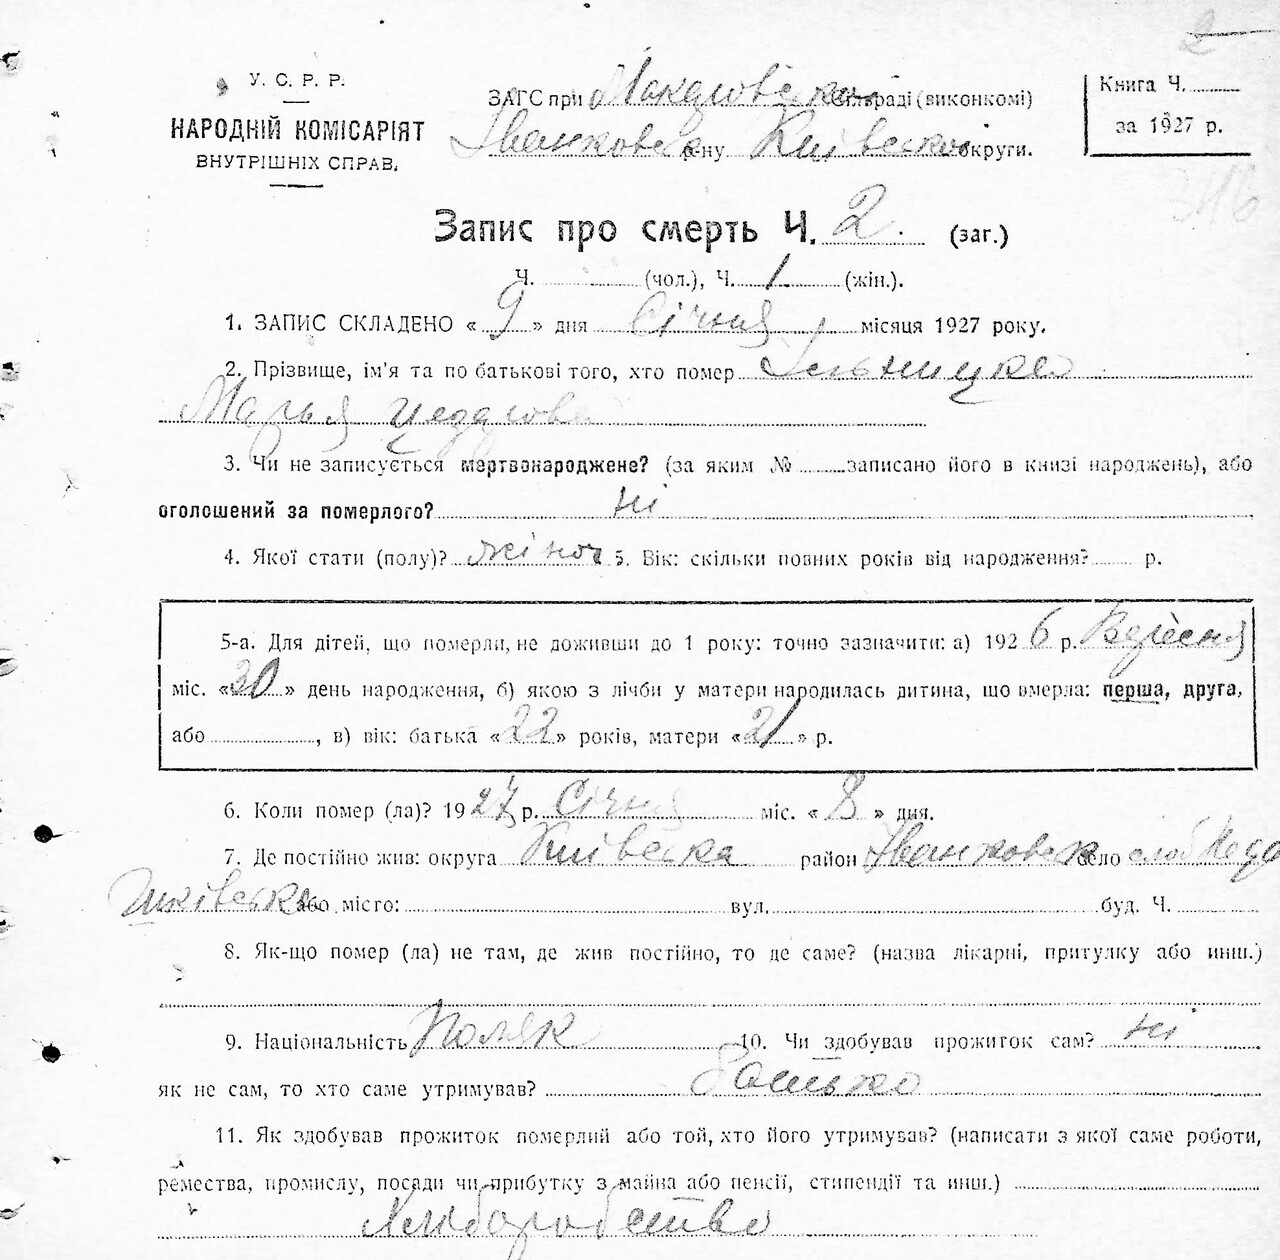 2
У. С. Р. Р.
НАРОДНІЙ КОМІСАРІЯТ
ВНУТРІШНІХ СПРАВ.
ЗАГС при сільраді (виконкомі)
Іванковск р-ну Київскої округи.
Книга Ч.
за 1927 р.
316
Запис про смерть Ч. 2. (заг.)
Ч. (чол.), Ч. 1 (жін.).
1. ЗАПИС СКЛАДЕНО « 9 » дня Січня місяця 1927 року.
2. Прізвище, ім'я та по батькові того, хто помер Ільницка
Марья
3. Чи не записується мертвонароджене? (за яким № записано його в книзі народжень), або
оголошений за померлого? ні
4. Якої стати (полу)? жіноч 5. Вік: скільки повних років від народження? р.
5-а. Для дітей, що померли, не доживши до 1 року: точно зазначити: а) 1926 р. Вересня
міс. «30» день народження, б) якою з лічби у матери народилась дитина, що вмерла: перша, друга,
або , в) вік: батька «22» років, матери «21» р.
6. Коли помер (ла)? 1927 р. Січня міс. « 8 » дня.
7. Де постійно жив: округа Київска район Іванковск село слоб
або місто: вул. буд. Ч.
8. Як-що помер (ла) не там, де жив постійно, то де саме? (назва лікарні, притулку або инш.)
9. Національність Поляк 10. Чи здобував прожиток сам? ні
як не сам, то хто саме утримував? батько
11. Як здобував прожиток померлий або той, хто його утримував? (написати з якої саме роботи,
ремества, промислу, посади чи прибутку з майна або пенсії, стипендії та инш.)
Хліборобство